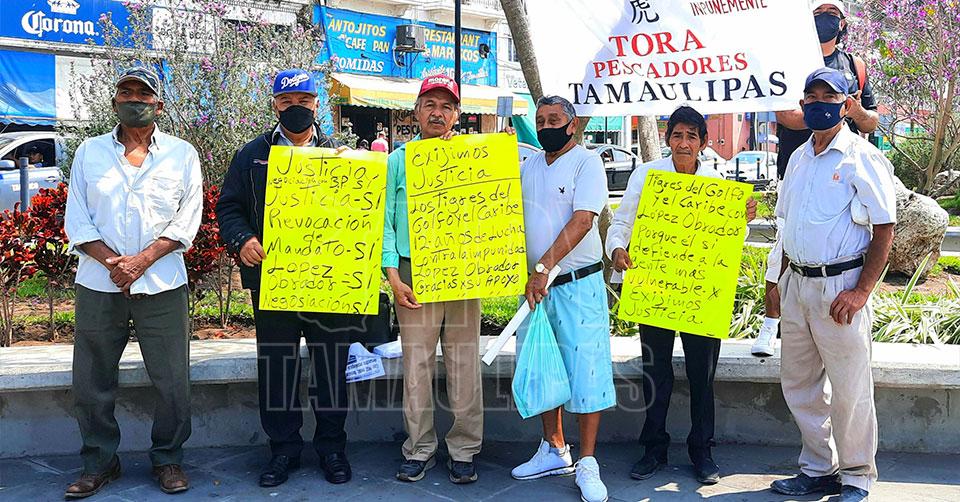 Corona
ANTOJITOS
CAFE PAN
COMIDAS
RESTAURANT
de
MARISCOS
IMPUNEMENTE
虎
TORA
PESCADORES
TAMAULIPAS
Dodgers
morena
PESCAD
Justicia
Negociación BP Sí
Justicia-Sí
Revocación
de
Mandato-Sí
Lopez
Obrador-Sí
Negosiacion Sí
Exijimos
Justicia
Los Tigres del
Golfo y el Caribe
12-años de Lucha
Contra la impunidad
Lopez Obrador
Gracias x su Apoyo
Tigres del Golfo
y el Caribe con
Lopez Obrador
Porque él si
defiende a la
Gente mas
vulnerable-x
Exijimos
Justicia
TAMAULIPAS